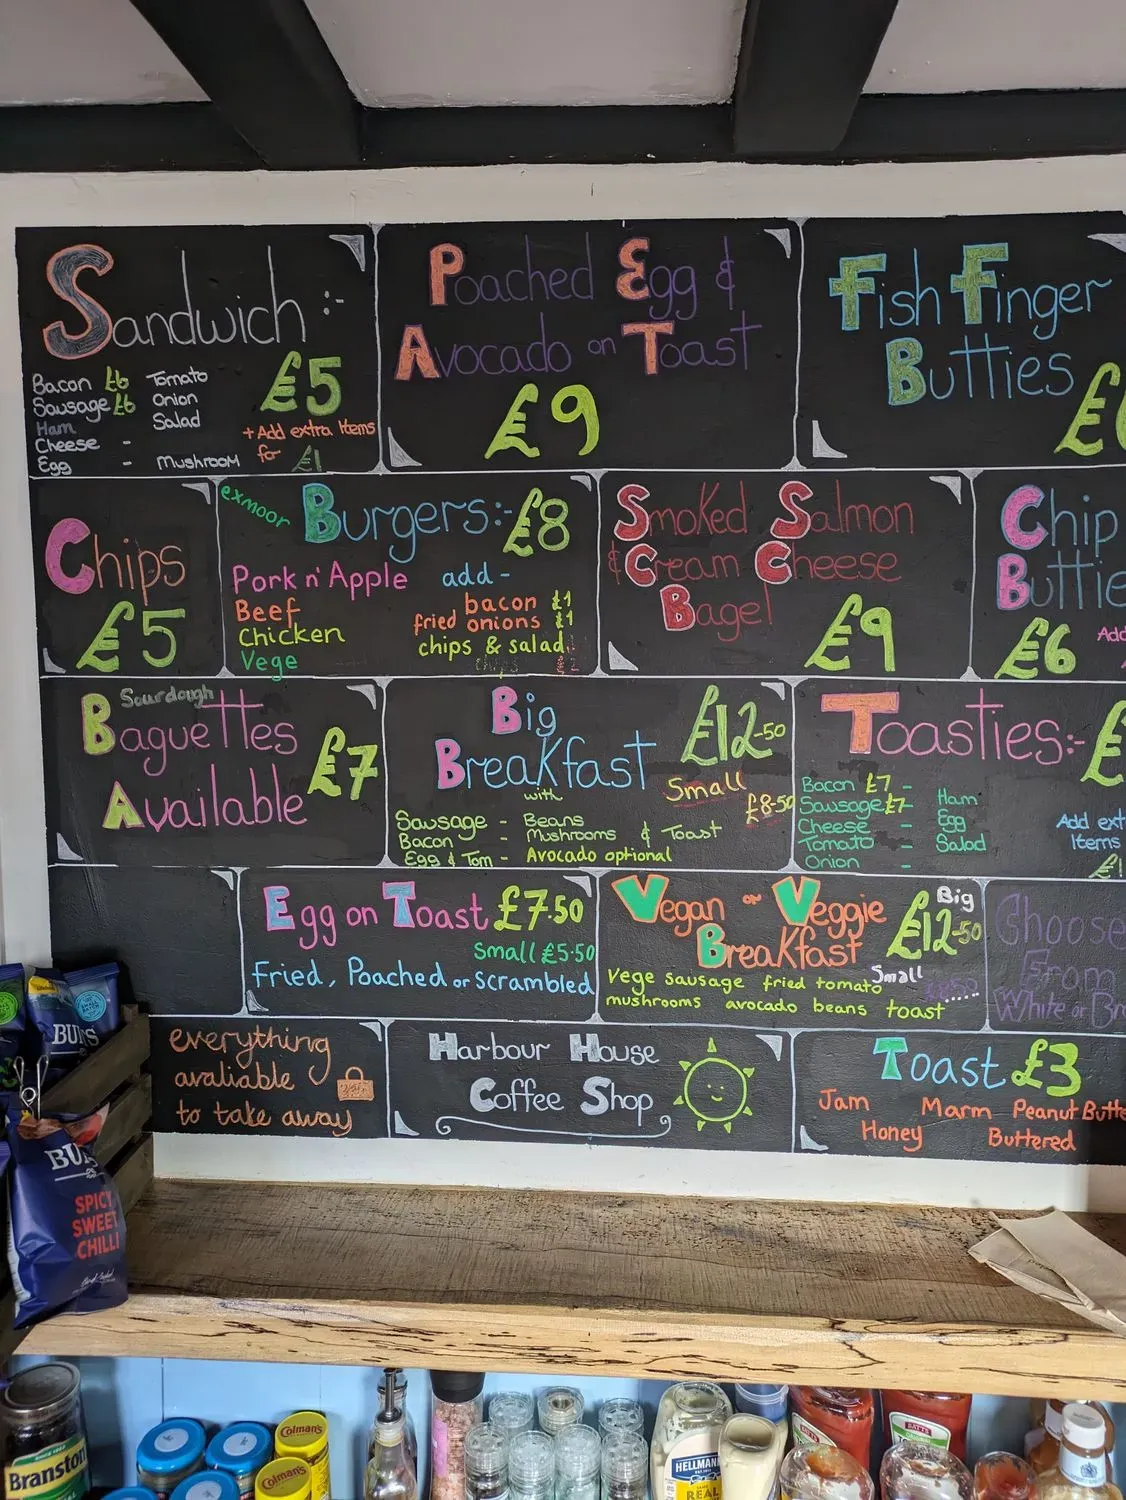 Sandwich :-
Bacon £6 Tomato
Sausage £6 Onion
Ham Salad
Cheese -
Egg - Mushroom
£5
+ Add extra Items
for £1
Poached Egg &
Avocado on Toast
£9
Fish Finger
Butties
Chips
£5
exmoor
Burgers:- £8
Pork n' Apple
Beef
Chicken
Vege
add -
bacon £1
fried onions £1
chips & salad
Smoked Salmon
& Cream Cheese
Bagel
£9
Chip
Butties
£6
Sourdough
Baguettes
Available
£7
Big
Breakfast
with
£12-50
Small
£8-50
Sausage - Beans
Bacon - Mushrooms & Toast
Egg & Tom - Avocado optional
Toasties:-
Bacon £7 -
Sausage £7 - Ham
Cheese - Egg
Tomato - Salad
Onion -
Add ext
Items
£1
Egg on Toast £7.50
Small £5-50
Fried, Poached or Scrambled
Vegan or Veggie
Breakfast
Big
£12-50
Small
Vege sausage fried tomato
mushrooms avocado beans toast
Choose
From
White or Br
everything
avaliable
to take away
Harbour House
Coffee Shop
Toast £3
Jam Marm Peanut Butte
Honey Buttered
BURTS
BURTS
SPICY
SWEET
CHILLI
Branston
Colman's
Colman's
HELLMANN'S
REAL